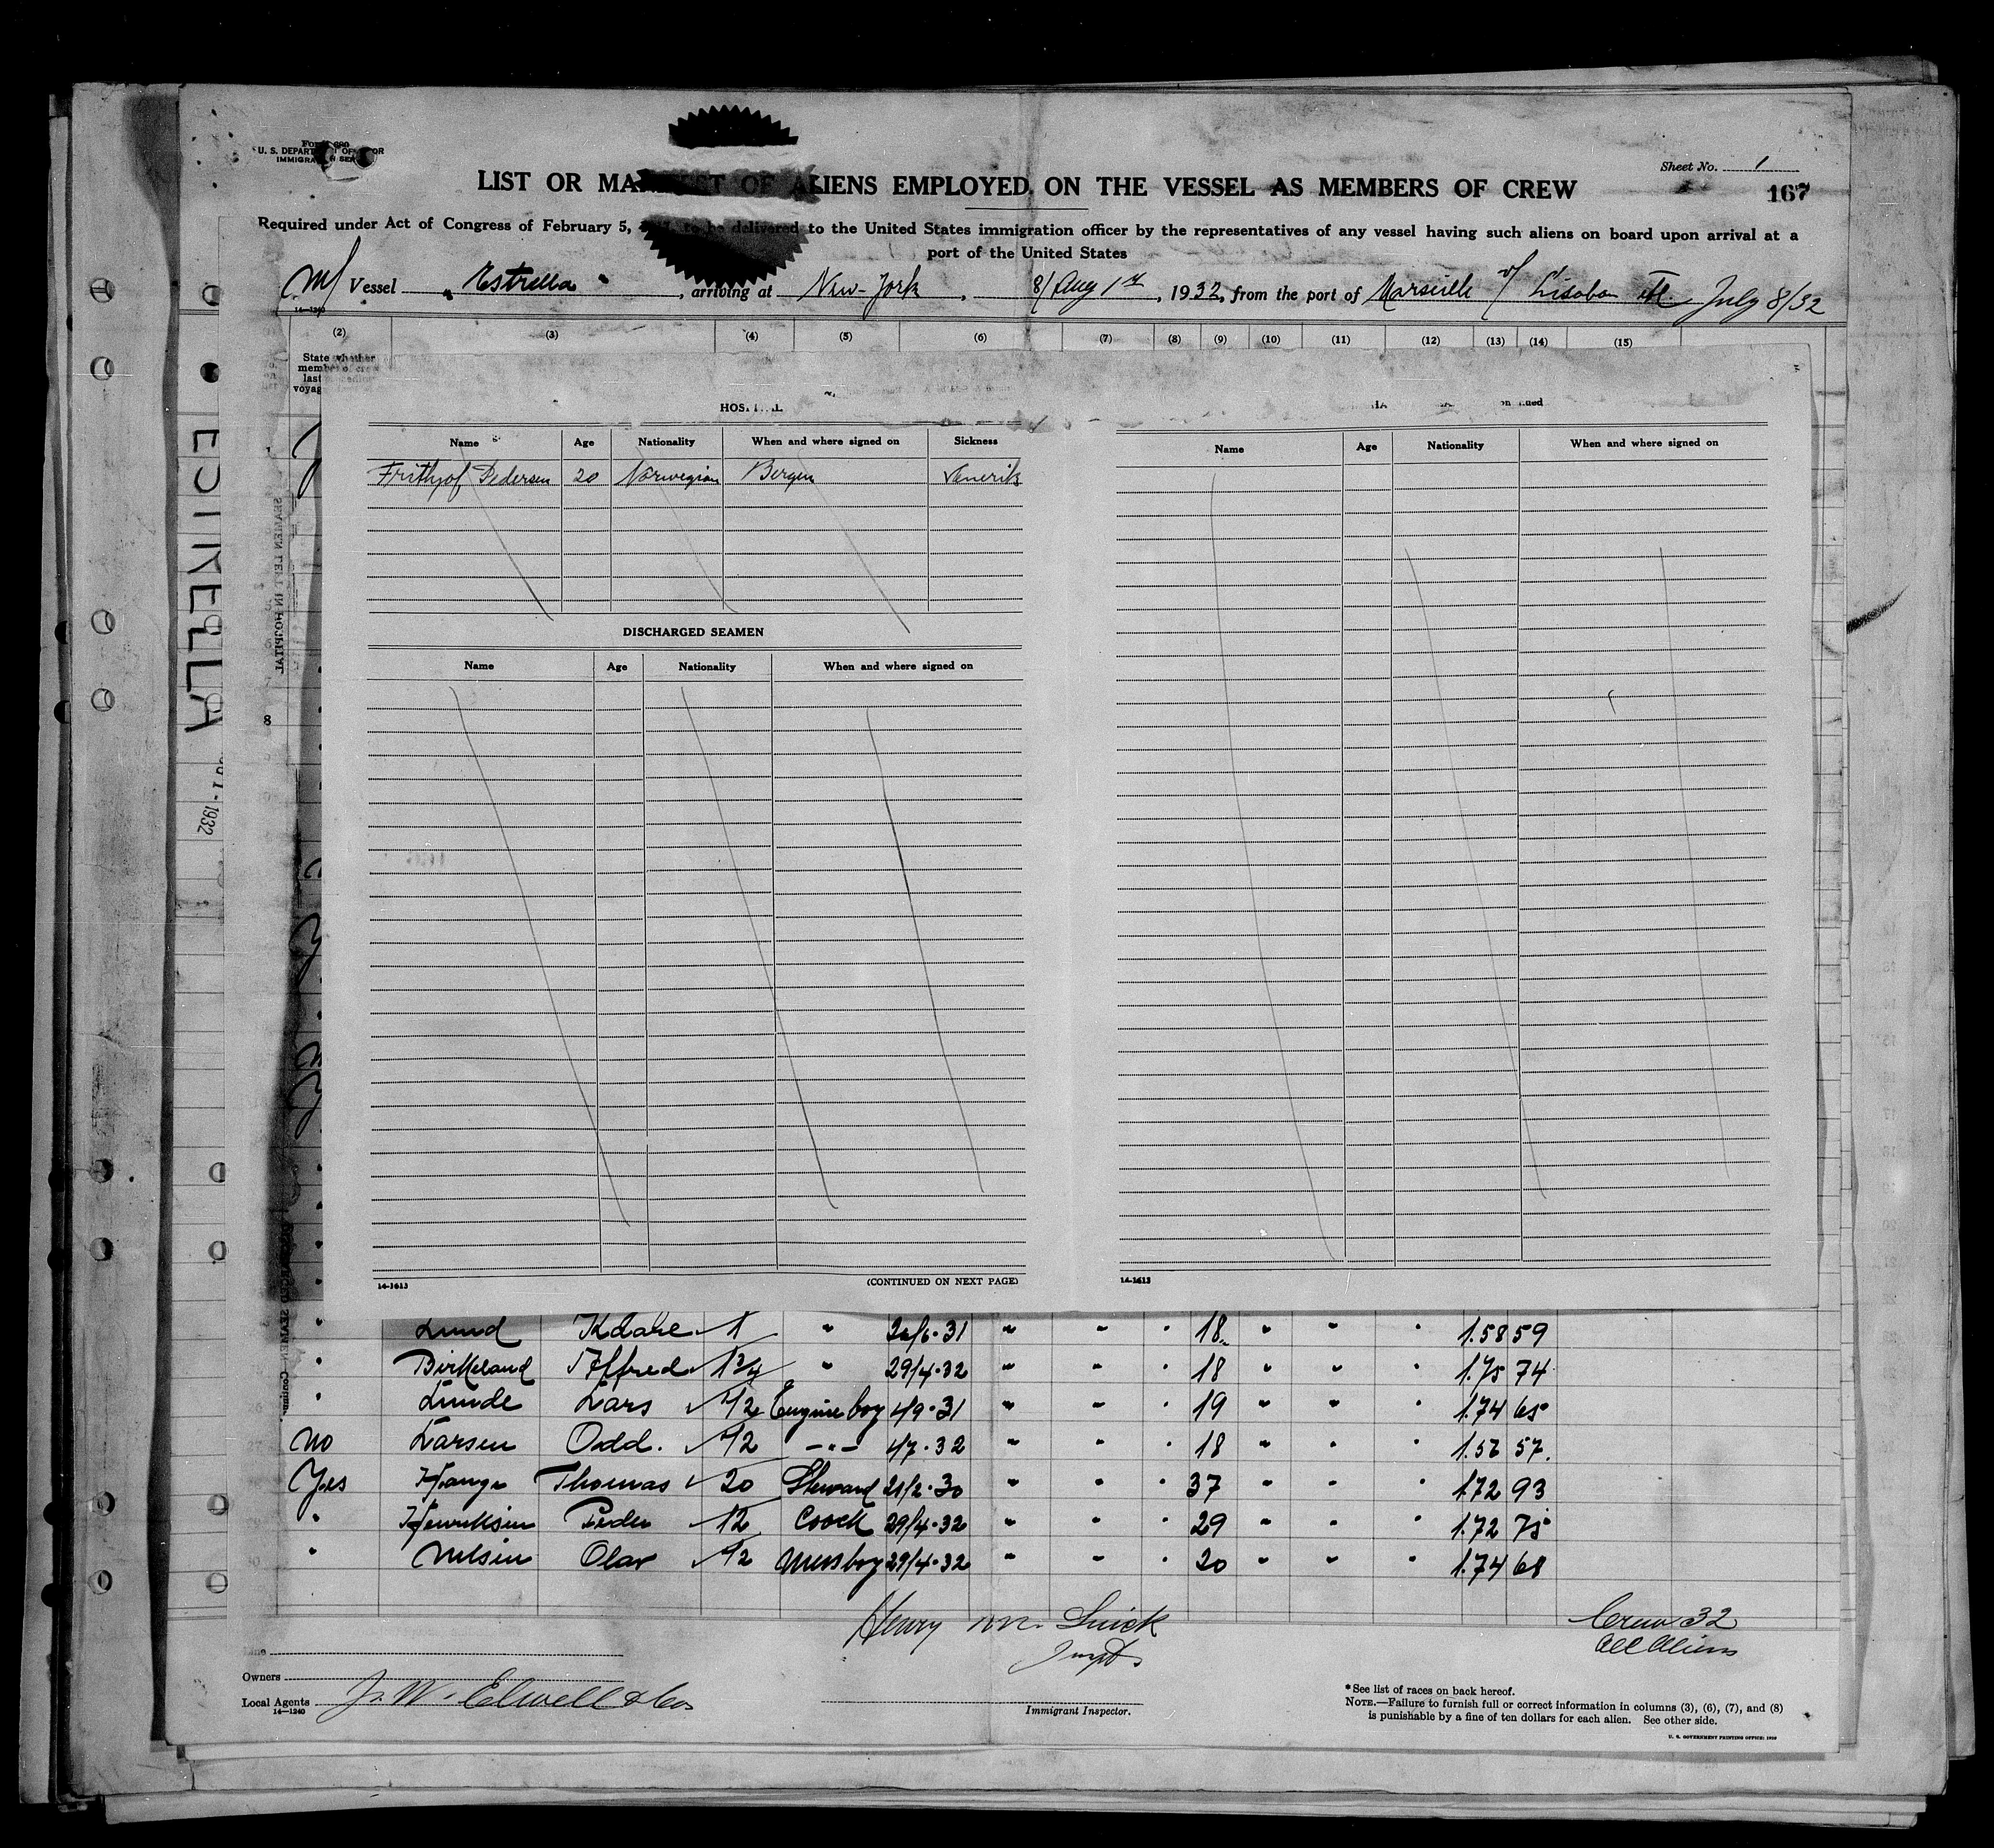 U. S. DEPARTMENT OF LABOR
IMMIGRATION SERVICE
Sheet No. 1
167
LIST OR MANIFEST OF ALIENS EMPLOYED ON THE VESSEL AS MEMBERS OF CREW
Required under Act of Congress of February 5, to be delivered to the United States immigration officer by the representatives of any vessel having such aliens on board upon arrival at a
port of the United States
M/ Vessel "Estrella", arriving at New-York, 8/Aug 1st, 1932, from the port of Marseille July 8/32
14—1240
(2) (3) (4) (5) (6) (7) (8) (9) (10) (11) (12) (13) (14) (15)
State whether
member of crew
last
voyage
HOSPITAL
Name Age Nationality When and where signed on Sickness
Frithjof Pedersen 20 Norwegian Bergen
DISCHARGED SEAMEN
Name Age Nationality When and where signed on
14-1613 (CONTINUED ON NEXT PAGE)
Name Age Nationality When and where signed on
14-1613
8
1932
" Lund Kaare 1 " 31 " " " 18 " " " 1.58 59
" Birkeland Alfred 1 3/4 " 29/4-32 " " " 18 " " " 1.75 74
" Lunde Lars 1/2 Engine boy 4/9-31 " " " 19 " " " 1.74 65
No Larsen Odd. 1/2 -"- 4/7-32 " " " 18 " " " 1.56 57.
Yes Hauge Thomas 20 Steward 21/2-30 " " " 37 " " " 1.72 93
" Henriksen Peder 12 Coock 29/4-32 " " " 29 " " " 1.72 75
" Nilsen Olav 1/2 Messboy 29/4-32 " " " 20 " " " 1.74 68
Henry M.
Crew 32
All Aliens
Owners
Local Agents J. W. Elwell & Co
14—1240
Immigrant Inspector.
* See list of races on back hereof.
NOTE.—Failure to furnish full or correct information in columns (3), (6), (7), and (8)
is punishable by a fine of ten dollars for each alien. See other side.
U. S. GOVERNMENT PRINTING OFFICE: 1930